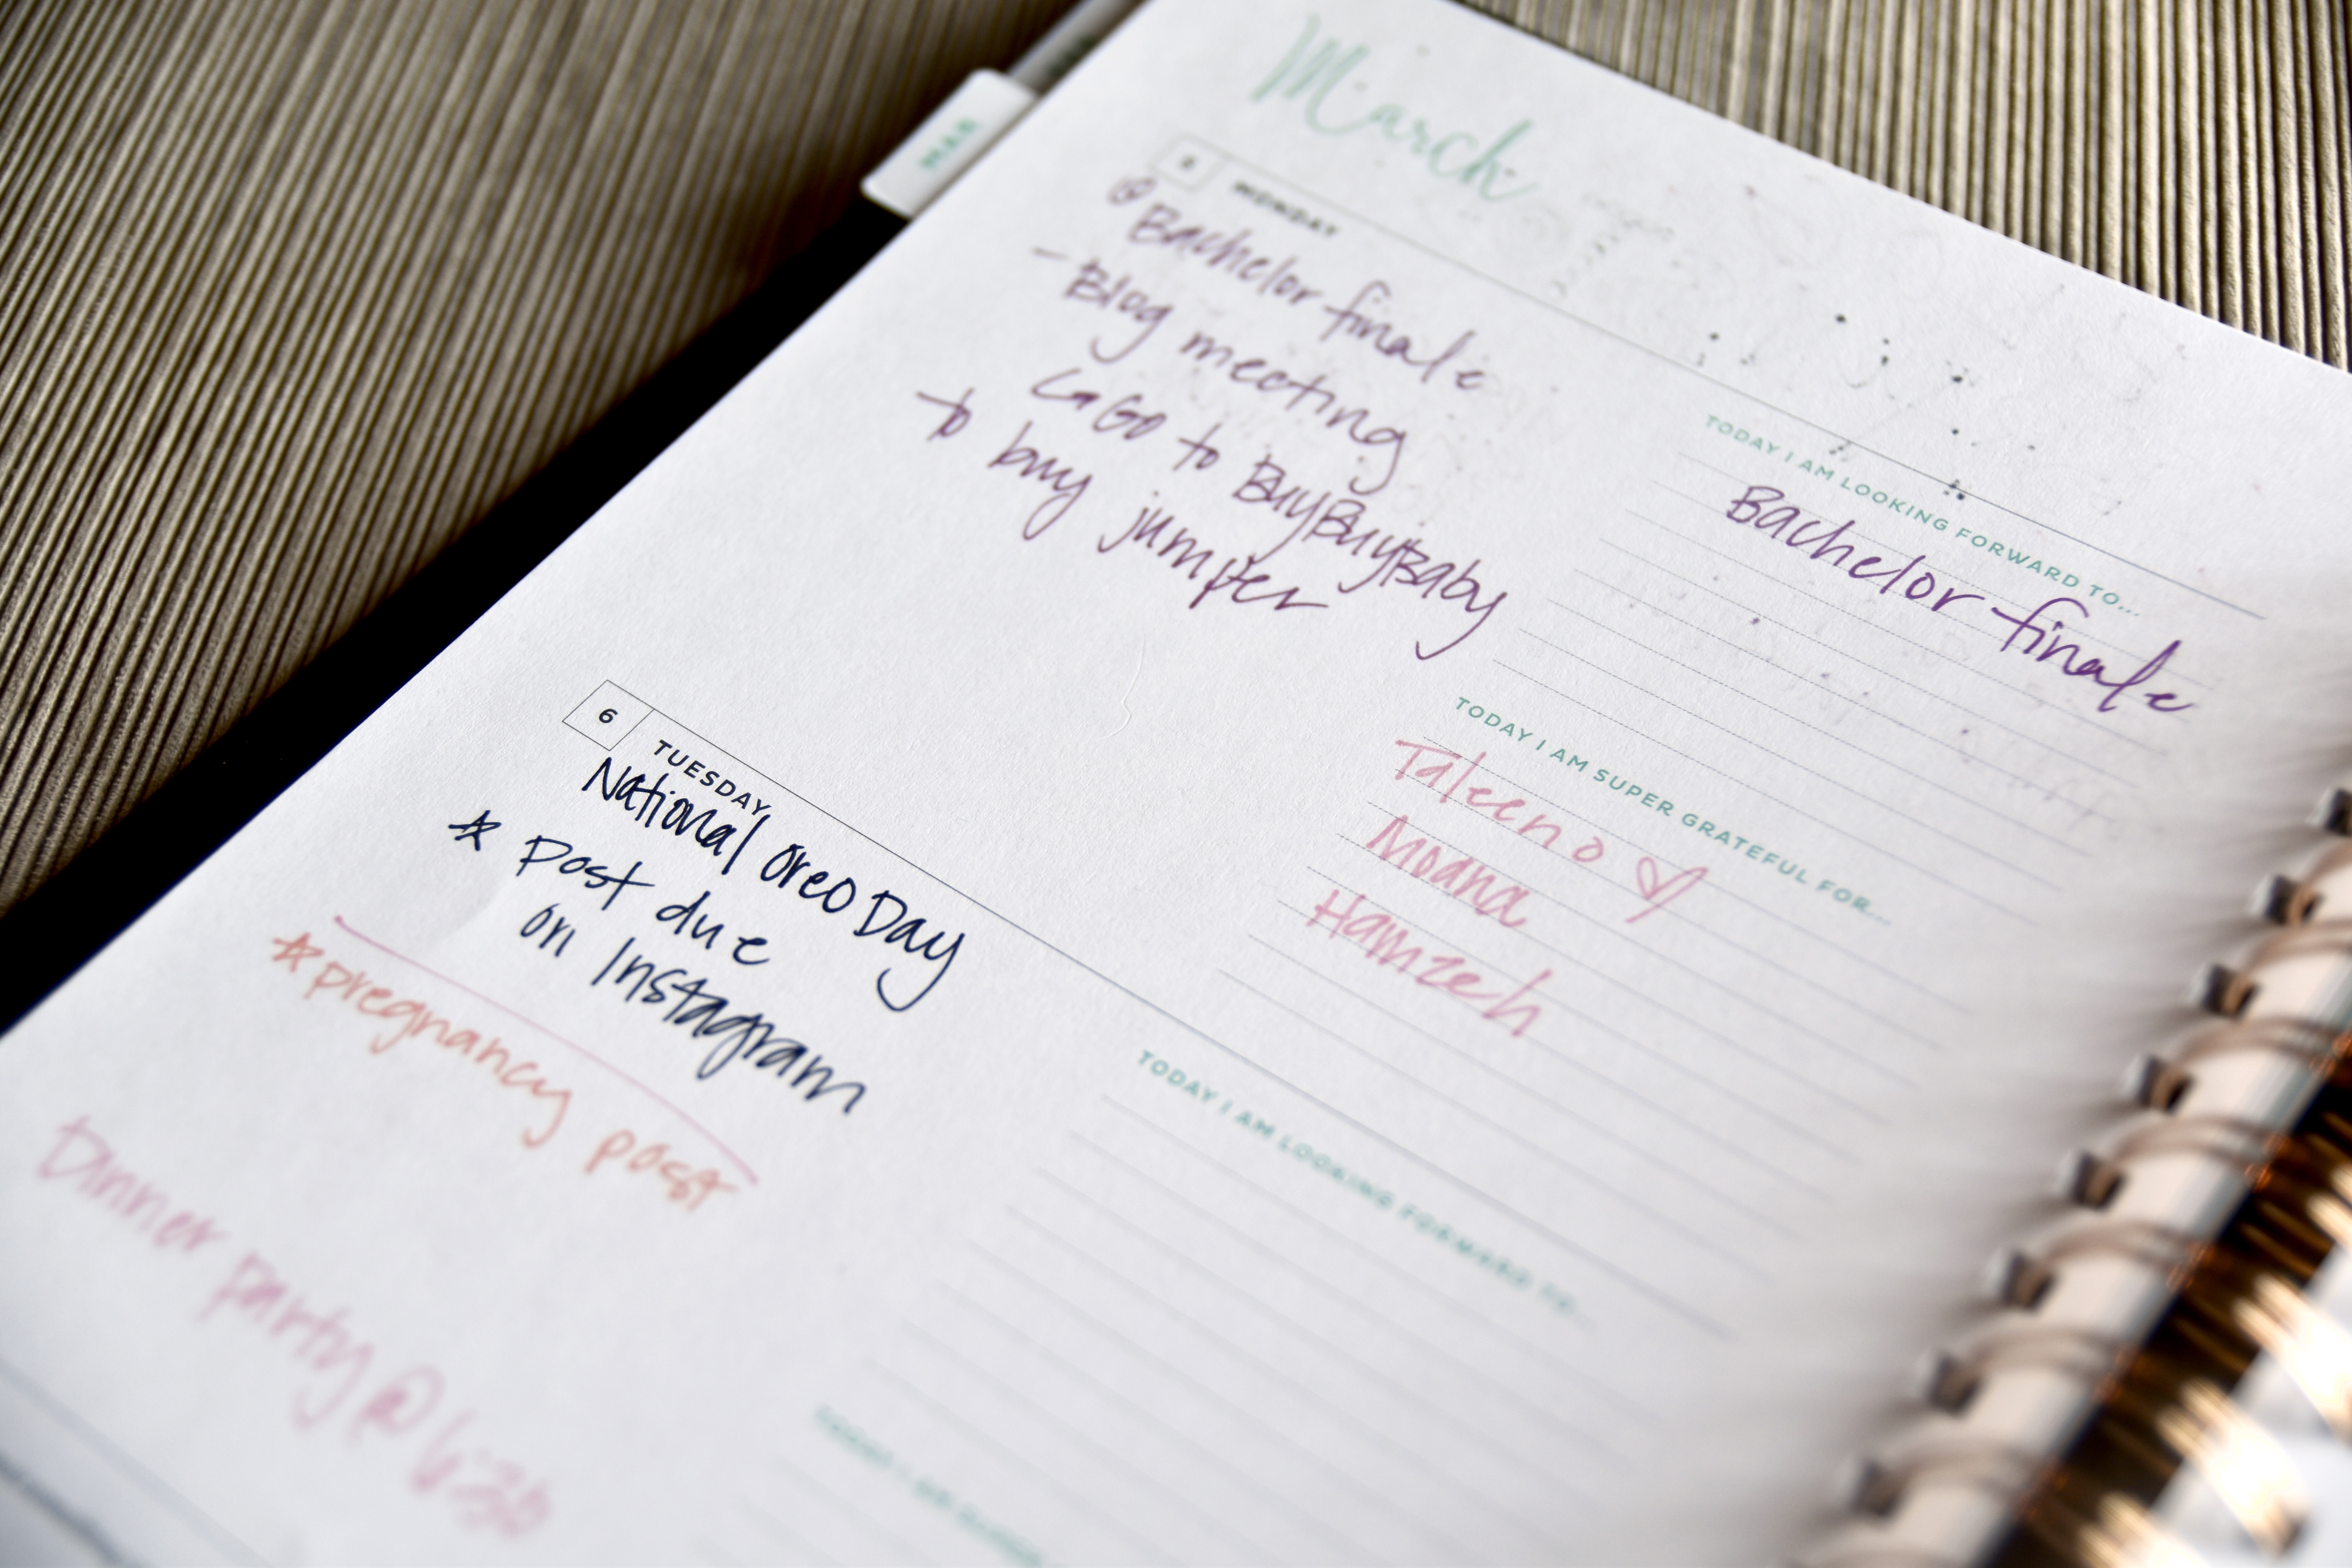 MAR
March
5 MONDAY
Bachelor finale
- Blog meeting
Go to BuyBuyBaby
to buy jumper
TODAY I AM LOOKING FORWARD TO...
Bachelor finale
TODAY I AM SUPER GRATEFUL FOR...
Taleen
Moana
Hamzeh
6 TUESDAY
National Oreo Day
☆ Post due
on Instagram
☆ pregnancy post
Dinner party @ 6:30
TODAY I AM LOOKING FORWARD TO...
TODAY I AM SUPER